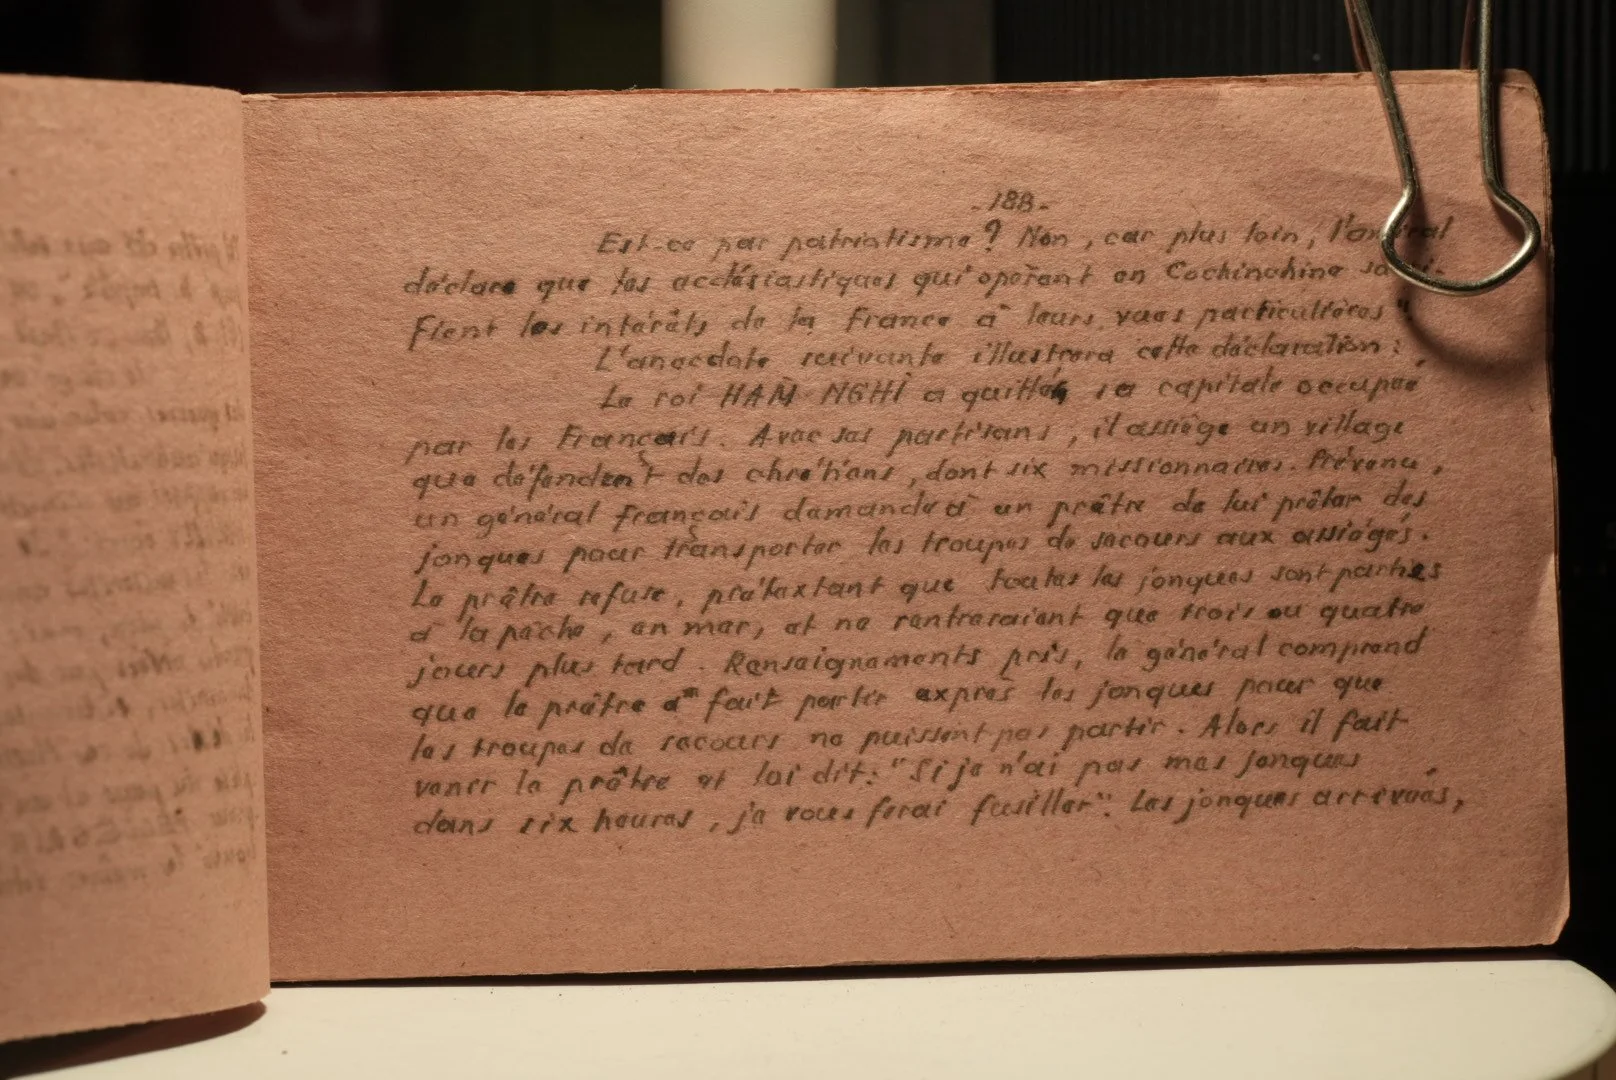 -188-
Est-ce par patriotisme ? Non, car plus loin, l'amiral
déclare que les ecclésiastiques qui opèrent en Cochinchine sacri-
fient les intérêts de la France à leurs vues particulières".
L'anecdote suivante illustrera cette déclaration :
Le roi HÀM NGHI a quitté sa capitale occupée
par les Français. Avec ses partisans, il assiège un village
que défendent des chrétiens, dont six missionnaires. Prévenu,
un général français demande à un prêtre de lui prêter des
jonques pour transporter les troupes de secours aux assiégés.
Le prêtre refuse, prétextant que toutes les jonques sont parties
à la pêche, en mer, et ne rentreraient que trois ou quatre
jours plus tard. Renseignements pris, le général comprend
que le prêtre a fait partir exprès les jonques pour que
les troupes de secours ne puissent pas partir. Alors il fait
venir le prêtre et lui dit : "Si je n'ai pas mes jonques
dans six heures, je vous ferai fusiller". Les jonques arrivées,